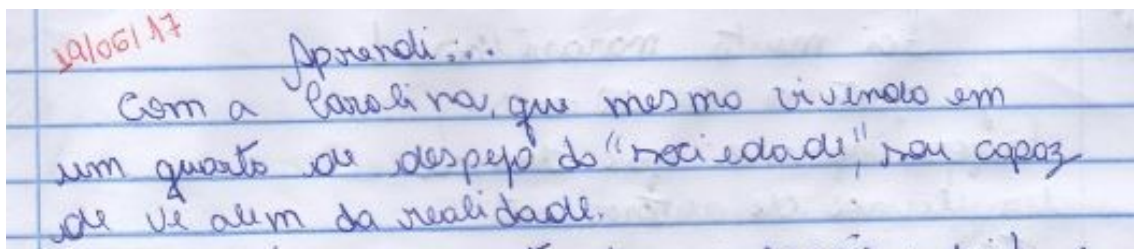 19/06/17
Aprendi...
Com a Carolina, que mesmo vivendo em
um quarto de despejo da "sociedade", sou capaz
de vê alem da realidade.